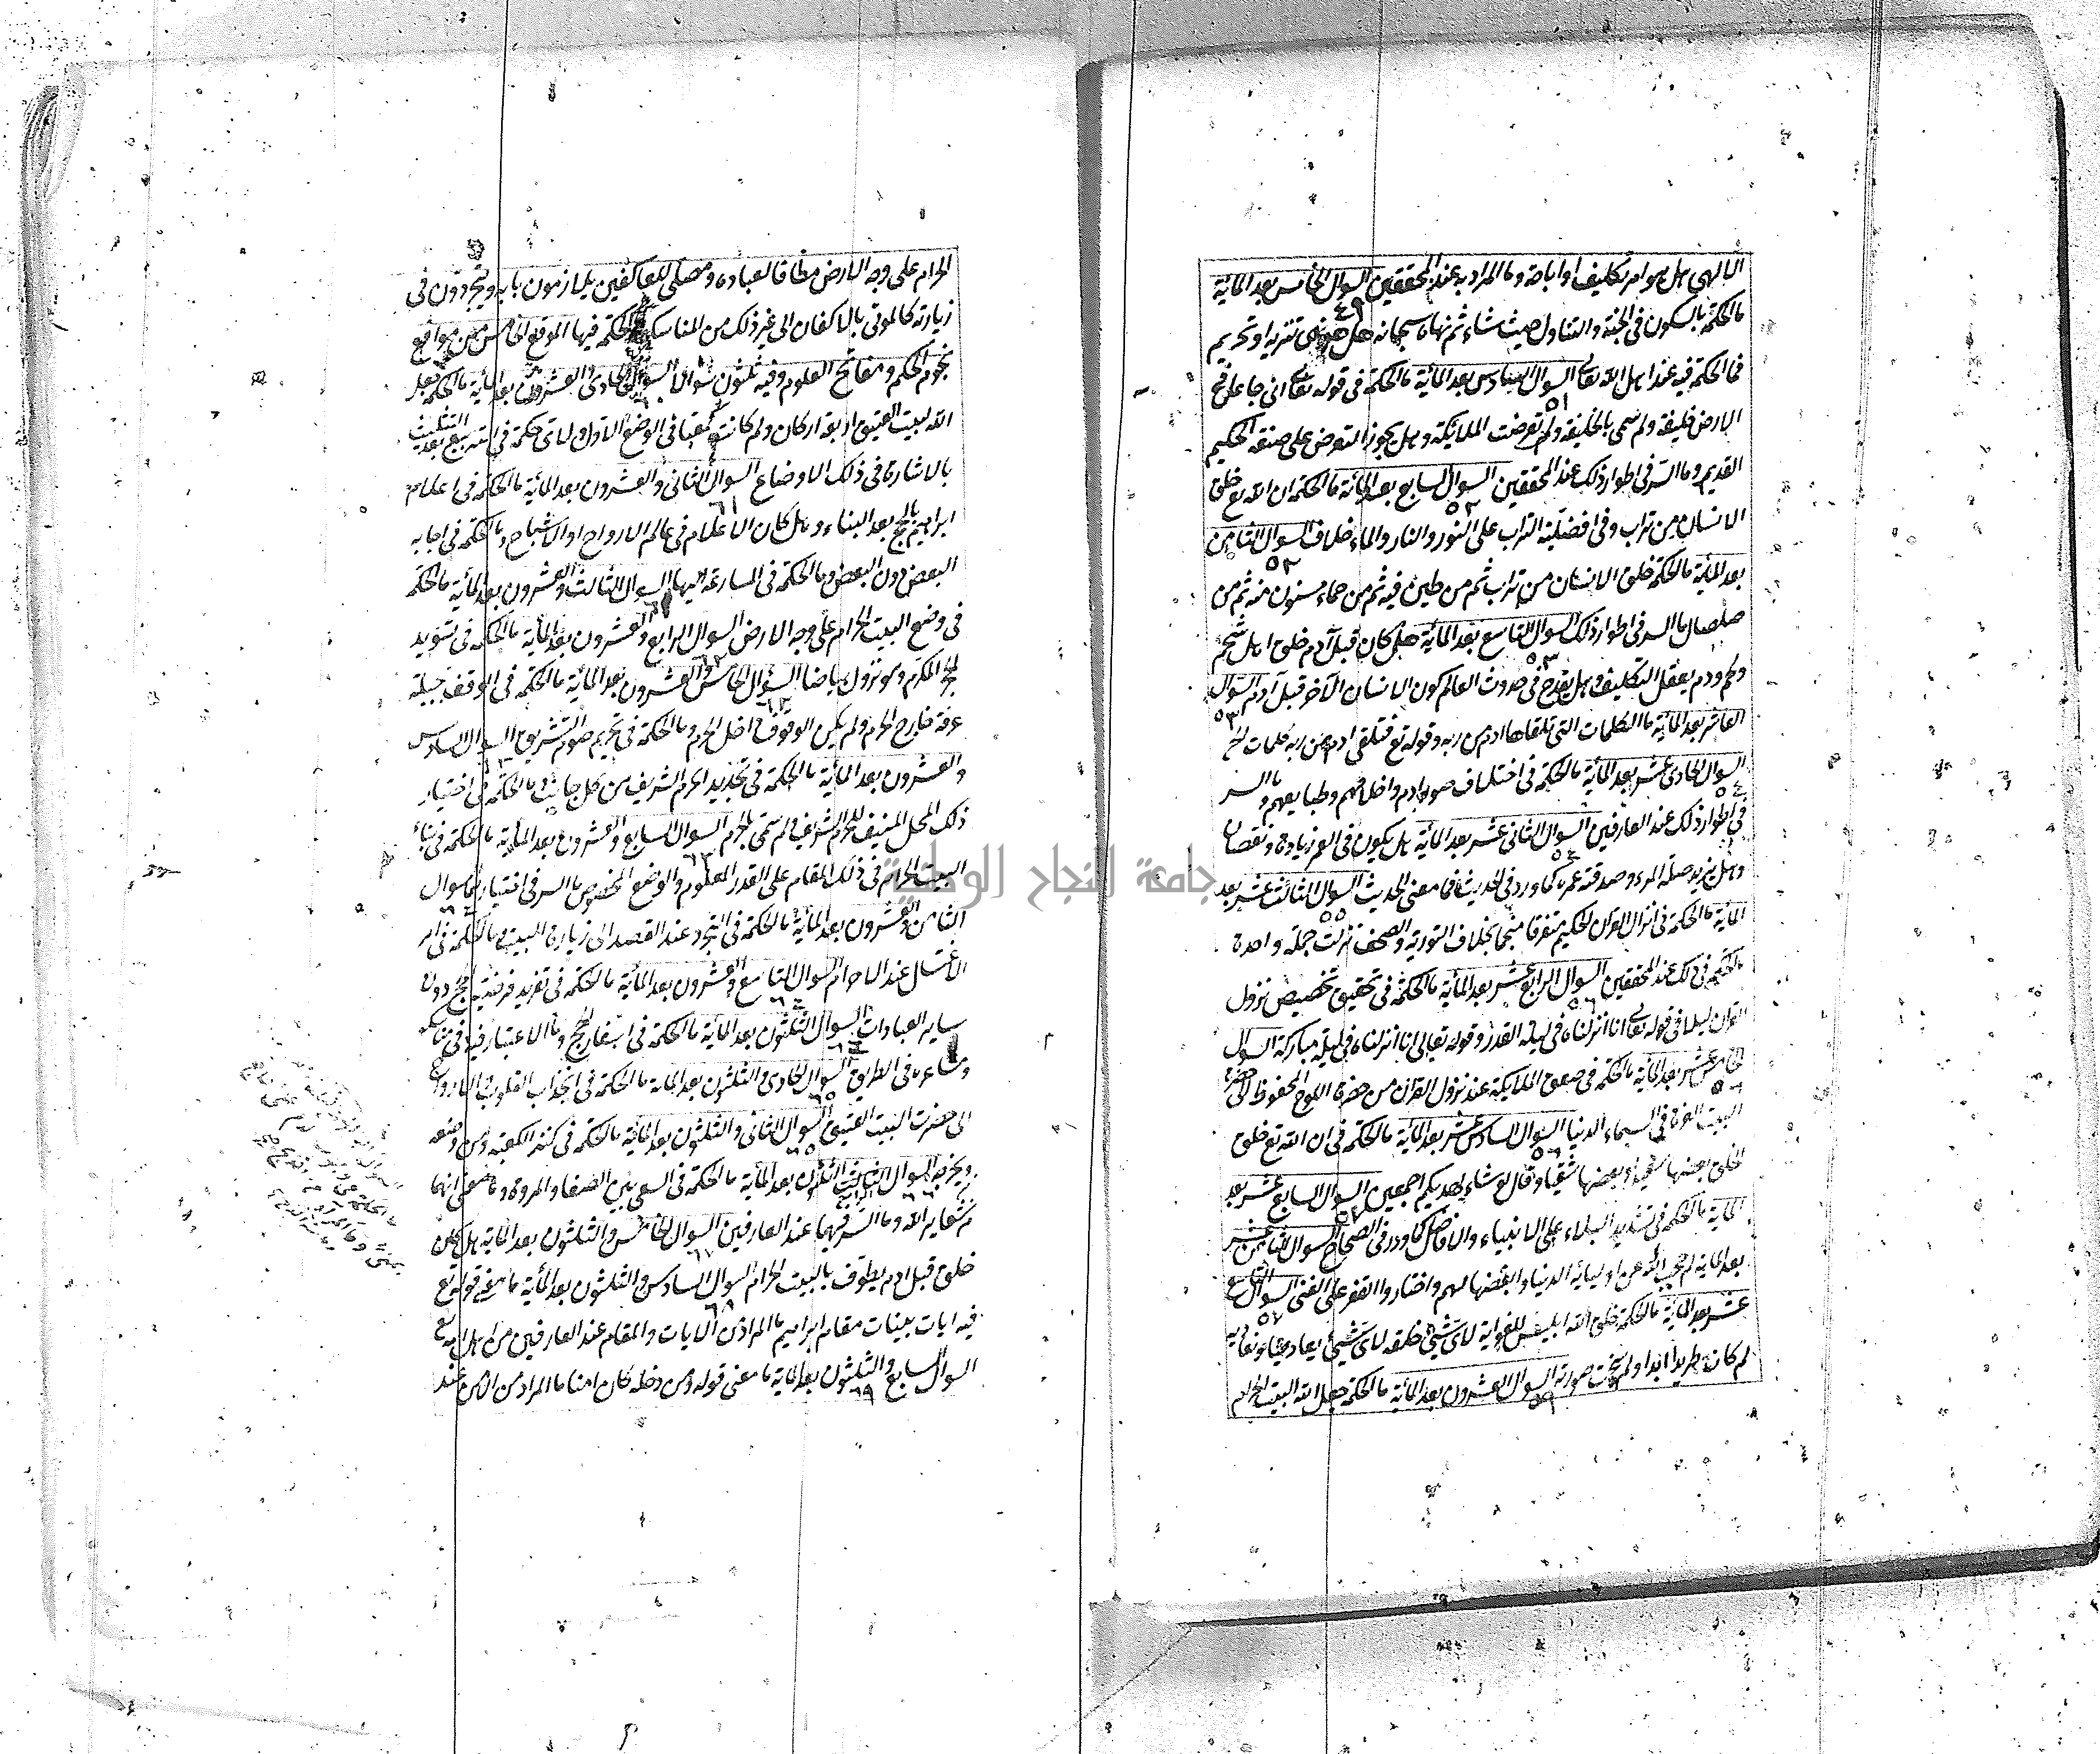 الالهي هل هو امر تكليف او اباحة وما المراد به عند المحققين السوال الخامس بعد المائة
ما الحكمة بالسكون في الجنة والتناول حيث شاء ثم نهاه سبحانه هل هو نهي تنزيه او تحريم
فما الحكمة فيه عند اهل الله تعالى السوال السادس بعد المائة ما الحكمة في قوله تعالى اني جاعل في
الارض خليفة ولم سمي بالخليفة ولم تعرضت الملائكة وهل يجوز التعرض على صنعة الحكيم
القديم وما السر في اطوار ذلك عند المحققين السوال السابع بعد المائة ما الحكمة ان الله تع خلق
الانسان من تراب وفي افضلية التراب على النور والنار والماء خلاف السوال الثامن
بعد المائة ما الحكمة خلق الانسان من تراب ثم من طين فيه ثم من حماء مسنون منه ثم من
صلصال ما السر في اطوار ذلك السوال التاسع بعد المائة هل كان قبل آدم خلق اهل شحم
ولحم ودم يعقل التكليف وهل يقدح في حدوث العالم كون الانسان الآخر قبل آدم السوال
العاشر بعد المائة ما الكلمات التي تلقاها ادم من ربه وقوله تع فتلقى ادم من ربه كلمات الخ
السوال الحادي عشر بعد المائة ما الحكمة في اختلاف صور ادم واخلاقهم وطبايعهم وما السر
في اطوار ذلك عند العارفين السوال الثاني عشر بعد المائة هل يكون في العمر زيادة ونقصان
وهل يزيد صلة المرء وصدقته عمره كما ورد في الحديث فما معنى الحديث السوال الثالث عشر بعد
المائة ما الحكمة في انزال القرآن الحكيم متفرقا منجما بخلاف التورية والصحف نزلت جملة واحدة
ما الحكمة في ذلك عند المحققين السوال الرابع عشر بعد المائة ما الحكمة في تحقيق تخصيص نزول
القرآن ليلا في قوله تعالى انا انزلناه في ليلة القدر وقوله تعالى انا انزلناه في ليلة مباركة السوال
الخامس عشر بعد المائة ما الحكمة في صعق الملائكة عند نزول القرآن من حضرة اللوح المحفوظ الى حضرة
البيت العزة في السماء الدنيا السوال السادس عشر بعد المائة ما الحكمة في ان الله تع خلق
الخلق بعضها سعيدا وبعضها شقيا وقال لو شاء لهديكم اجمعين السوال السابع عشر بعد
المائة ما الحكمة في تشديد البلاء على الانبياء والافاضل كما ورد في الصحاح السوال الثامن عشر
بعد المائة لم يحجب الله عن اوليائه الدنيا وابغضها لهم واختاروا الفقر على الغنى السوال التاسع
عشر بعد المائة ما الحكمة خلق الله ابليس للغواية لاي شيئ خلقه لاي شيئ
لم كان طريدا ابدا ولم صورته السوال العشرون بعد المائة ما الحكمة جعل الله البيت الحرام
الحرام على وجه الارض مطافا لعباده ومصلى للعاكفين يلازمون بابه ويتجردون في
زيارته كالموتى بالاكفان الى غير ذلك من المناسك ما الحكمة فيها الموقع الخامس من مواقع
نجوم الحكم ومفاتح العلوم وفيه ثلثون سوالا السوال الحادي والعشرون بعد المائة ما الحكمة بجعل
الله لبيت العتيق اربعة اركان ولم كانت مكعبا في الوضع الاول ولاي حكمة في التربيع بعد التثليث
بالاشارة في ذلك الاوضاع السوال الثاني والعشرون بعد المائة ما الحكمة في اعلام
ابراهيم بالحج بعد البناء وهل كان الاعلام في عالم الارواح او الاشباح وما الحكمة في اجابه
البعض دون البعض وما الحكمة في المسارعة اليها السوال الثالث والعشرون بعد المائة ما الحكمة
في وضع البيت الحرام على وجه الارض السوال الرابع والعشرون بعد المائة ما الحكمة في تسويد
الحجر المكرم وهو نزول بياضا السوال الخامس والعشرون بعد المائة ما الحكمة في الوقف جبلة
عرفة خارج الحرم ولم يكن الوقوف داخل الحرم وما الحكمة في تحريم صوم التشريق السوال السادس
والعشرون بعد المائة ما الحكمة في تحديد الحرم الشريف من كل جانب وما الحكمة في اختيار
ذلك المحل المنيف للحرم الشريف ولم سمي بالحرم السوال السابع والعشرون بعد المائة ما الحكمة في بناء
البيت الحرام في ذلك المقام على القدر المعلوم والوضع المخصوص ما السر في اختيار سوال
الثامن والعشرون بعد المائة ما الحكمة في التجرد عند القصد الى زيارة البيت وما الحكمة في امر
الاغتسال عند الاحرام السوال التاسع والعشرون بعد المائة ما الحكمة في تفريد فرضية الحج دون
ساير العبادات السوال الثلثون بعد المائة ما الحكمة في اسفار الحج وما الاعتبار فيه في مناسكه
ومشاعره في الطريق السوال الحادي والثلثون بعد المائة ما الحكمة في انجذاب القلوب والارواح
الى حضرت البيت العتيق السوال الثاني والثلثون بعد المائة ما الحكمة في كنز الكعبة ومن وضعه
ويخرجه السوال الثالث والثلثون بعد المائة ما الحكمة في السعي بين الصفا والمروة وما معنى انهما
من شعاير الله وما السر فيهما عند العارفين السوال الخامس والثلثون بعد المائة هل كان
خلق قبل ادم يطوف بالبيت الحرام السوال السادس والثلثون بعد المائة ما معنى قوله تع
فيه ايات بينات مقام ابراهيم ما المراد من الايات والمقام عند العارفين من اهل الله تع
السوال السابع والثلثون بعد المائة ما معنى قوله ومن دخله كان امنا ما المراد من الامن عند
جامعة النجاح الوطنية